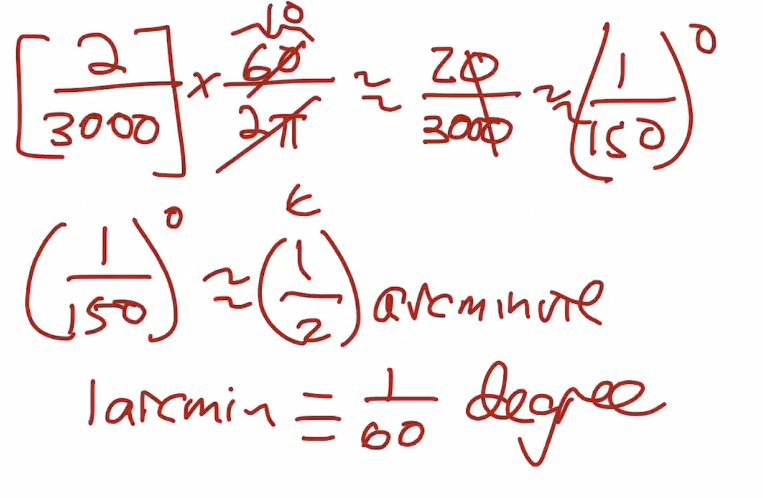 10
[2/3000] × 60/2π ≈ 20/3000 ≈ (1/150)°
(1/150)° ≈ (1/2) arcminute
1arcmin ≡ 1/60 degree